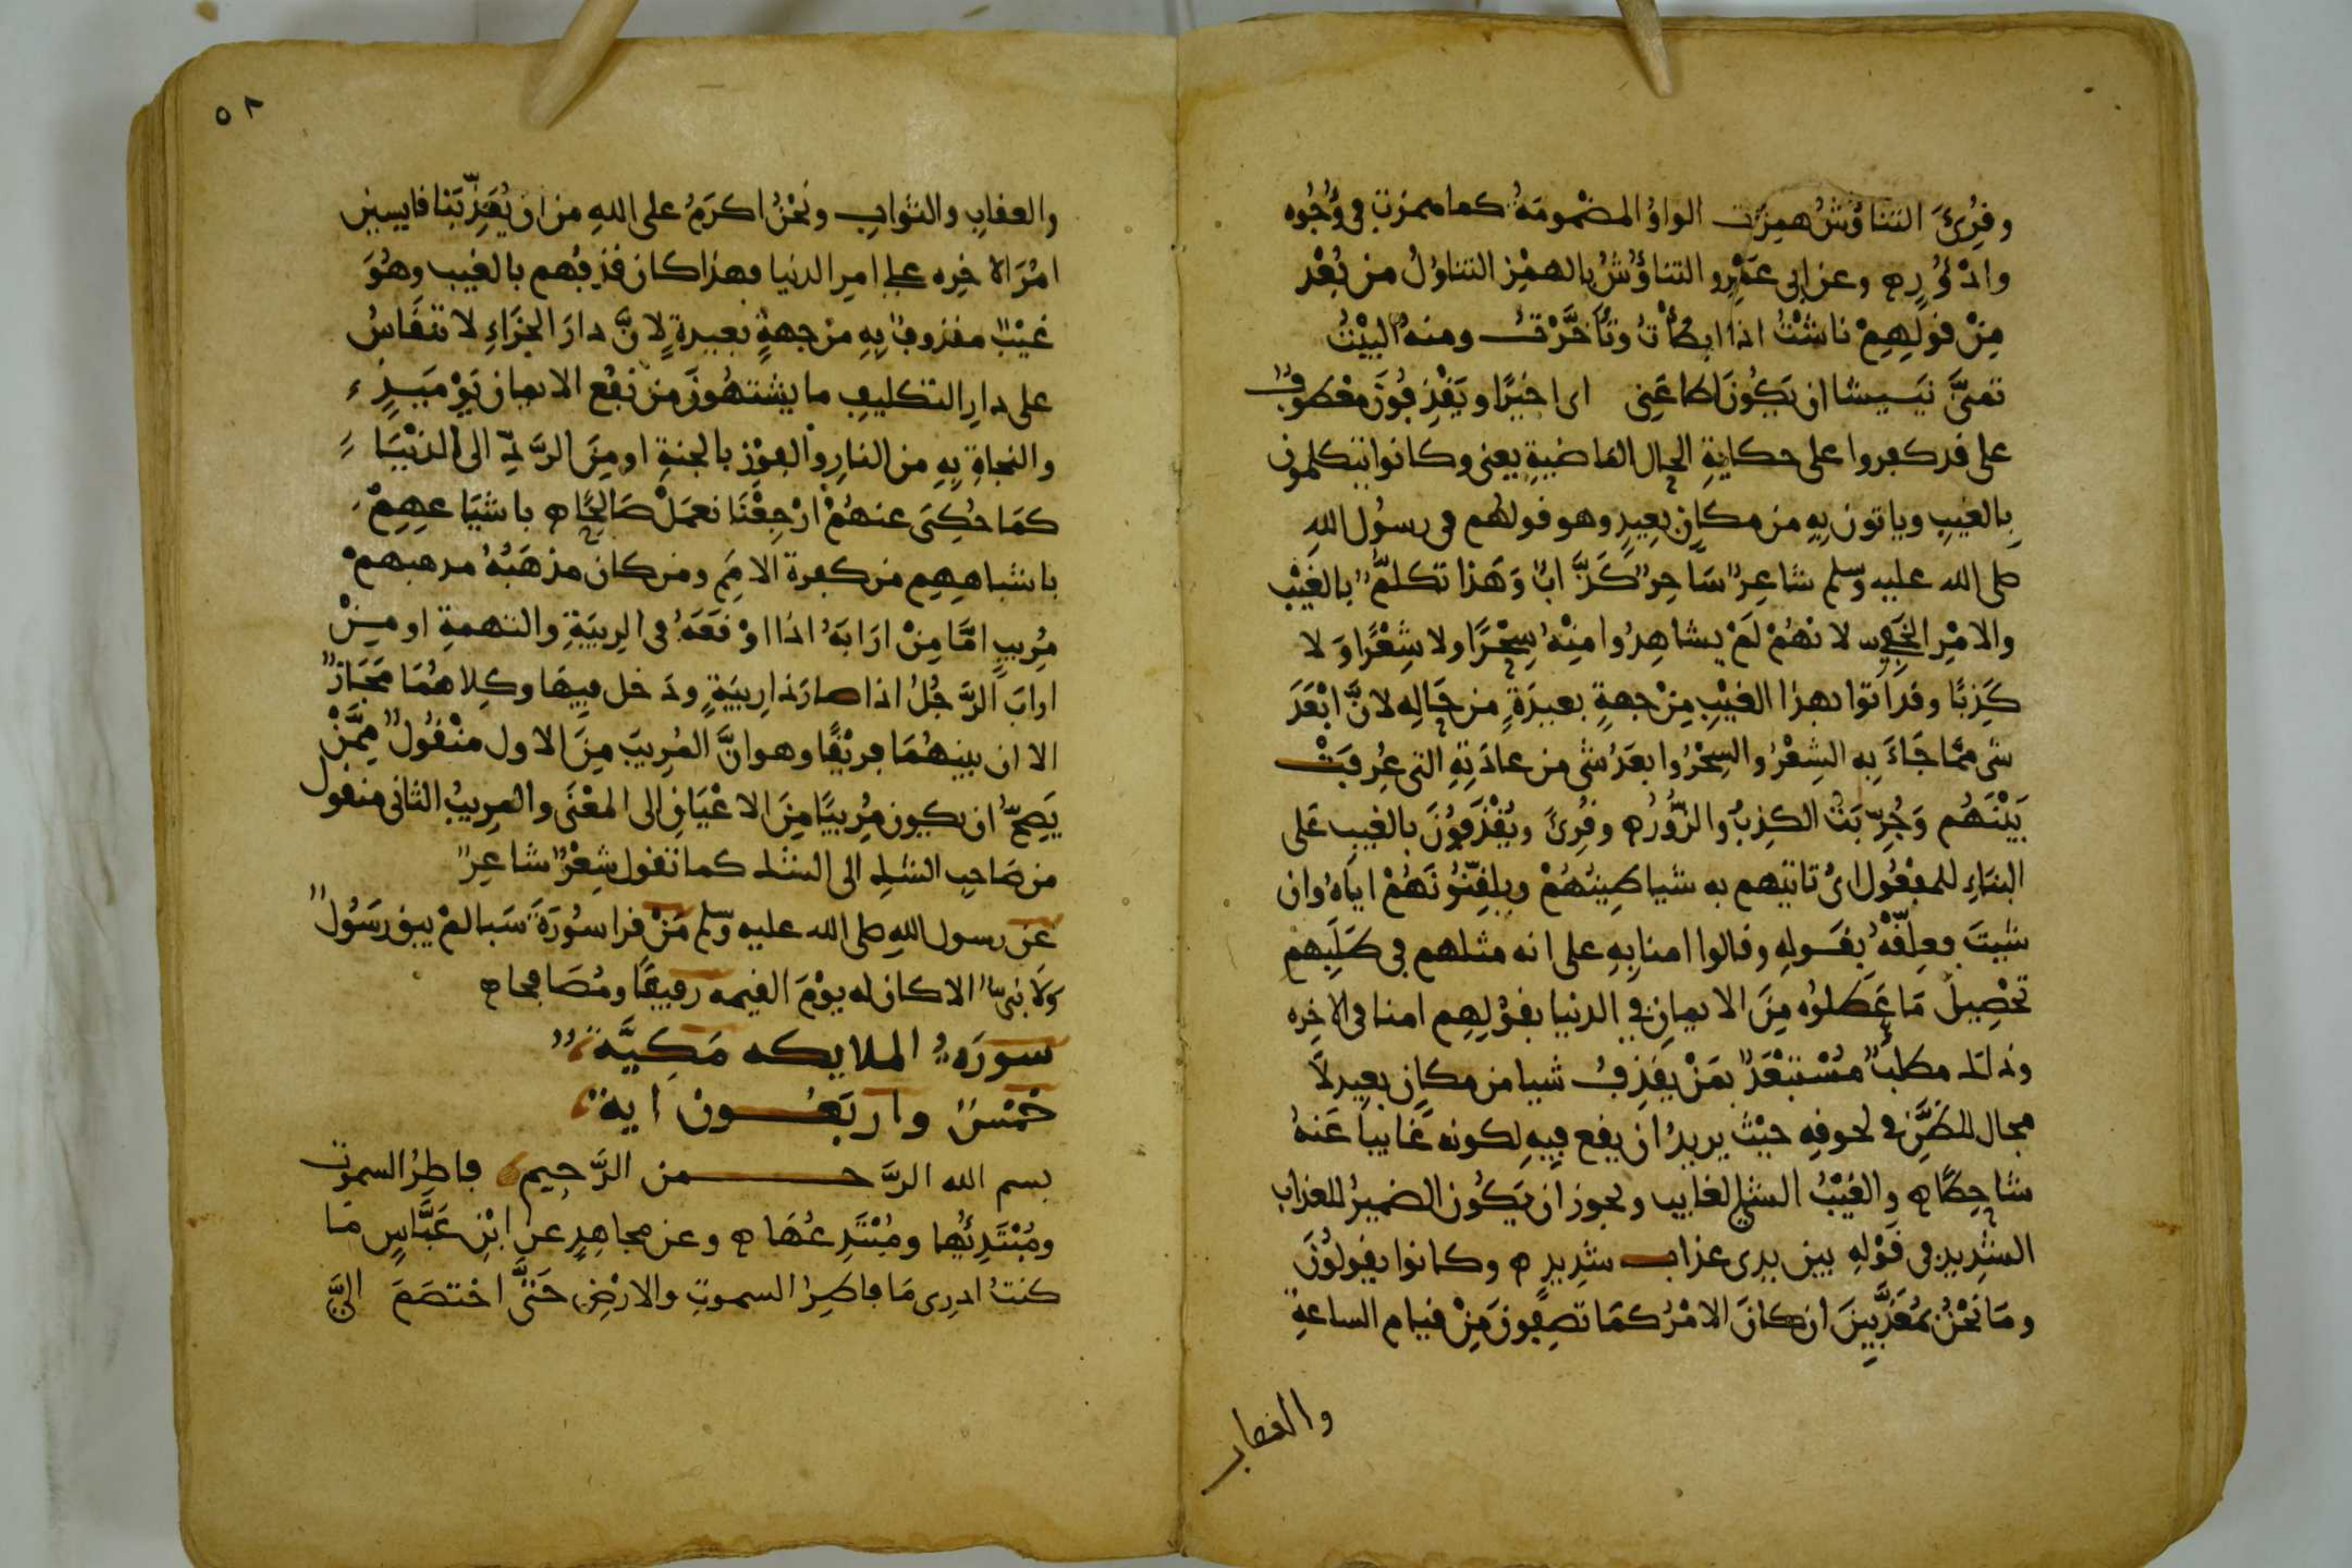 وقُرِئَ التناؤُشُ هُمِزَت الواوُ المضْمومَةُ كما همزت في وُجُوه
وادْؤُرٍ ه وعن ابي عَمْرٍو التناؤُشُ بالهمْزِ التناوُلُ من بُعْدٍ
مِنْ قولِهِمْ ناشْتُ اذا ابطأْتُ وتأَخَّرْتُ ومنه البيْتُ
تمنَّى نَيِيشا ان يَكُونَ اطاعَنِى اى اخيرًا ويَقْذِفُونَ معْطوفٌ
على قد كفروا على حكايةِ الحال الماضيةِ يعنى وكانوا يتكلمون
بِالغيبِ وياتون بِهِ من مكانٍ بعِيدٍ وهو قولهُم فى رسُول اللهِ
صلى الله عليه وسلم شاعِرٌ سَاحِرٌ كَذَّابٌ وَهَذا تكلمٌ بالغَيْبِ
والامْرِ الخَفِيِّ لانهُمْ لَمْ يشاهِدُوا مِنْهُ سِحْرًا ولا شِعْرًا وَلا
كَذِبًا وقد اتوا بهذا الغيْبِ مِنْ جهةٍ بعيدَةٍ من حَالِهِ لانَّ ابْعَدَ
شى ممّا جَاءَ بِه الشِعْرُ والسِحْرُ وابعَدُ شى من عادَتِهِ التى عُرِفَتْ
بَيْنَهُم وَجُرِّبَتْ الكذِبُ والزُّورُ ه وقُرِئَ ويُقْذَفُونَ بالغيبِ عَلى
البنَاءِ للمفْعُول اىْ تاتيهم به شياطِينُهُمْ ويلقِّنُونَهُمْ اياهُ وان
شيتَ فعلِقْهُ بقَولِهِ وقالوا امنا بِهِ على انه مثلهم في طَلَبِهم
تحْصِيلَ مَا عَطلوُه مِنَ الايمانِ في الدنيا بقوْلِهِم امنا في الاخِره
وذلك مطلبٌ مُسْتبْعَدٌ بمَنْ يقذِفُ شيا من مكانٍ بعِيدٍ لاَ
مجال للظَّنِّ في لحوقِهِ حيْثُ يريدُ ان يقع فِيهِ لكونه غَايبا عَنهُ
شاحِطًا ه والغَيْبُ الشىُ الغايب ويجوز ان يَكُون الضميرُ للعذابِ
الشدِيدِ فى قَوْلِهِ بين يدى عذاب شَدِيدٍ ه وكانوا يقولُونَ
ومَا نَحْنُ بمُعَذَّبِينَ ان كانَ الامْرُ كمَا تصِفونَ مِنْ قيام الساعةِ
والعقاب
٥٨
والعقابِ والثوابِ ونَحْنُ اكرَمُ على اللهِ من ان يُعَذِّبَنا قايسين
امْرَ الاخِره على امرِ الدنيا فهذا كان قذفُهم بالغيب وهُوَ
غيْبٌ مقذوفٌ بِهِ من جهةٍ بعيدةٍ لِانَّ دارَ الجَزَاءِ لا تنقَاسُ
على دارِ التكليفِ ما يشتهُونَ من نفْع الايمان يَوْمَيِذٍ
والنجاةِ بِهِ من النارِ والفوْزِ بالجنةِ او مِنَ الرَّدِّ الى الدنْيَا
كمَا حُكِىَ عنهُمْ ارْجِعْنَا نعمَلْ صَالِحًا ه باشيَاعِهِمْ
باشباهِهِم من كفرة الامَمِ ومن كان مذهَبُهُ مذهبهمْ
مُرِيبٍ امَّا مِنْ ارَابَهُ اذا اوْقعَهُ في الرِيبَةِ والتهمةِ او مِنْ
ارابَ الرَّجُلُ اذا صارَ ذا رِيبَةٍ ودَخل فِيهَا وكِلاهُمَا مَجَازٌ
الا ان بينهُمَا فريْقًا وهو انَّ المُرِيبَ مِنَ الاول منْقُولٌ مِمَّنْ
يَصِحُّ ان يكون مُرِيبًا مِنَ الاعْيَانِ الى المعْنَى والمرِيبُ الثانى منقول
من صَاحِبِ الشكِ الى الشك كما تقول شِعْرٌ شاعِرٌ
عن رسول اللهِ صلى الله عليه وسلم مَنْ قرا سُورَةَ سَبا لمْ يبق رسَوُلٌ
وَلا نبىٌّ الا كان له يوْمَ القيمه رفيقًا ومُصَافحا ه
سورَة الملايكه مَكِيَّةٌ
خمْسٌ واربَعُــون ايةً
بسم الله الرَّحـــمن الرَّحِيم فاطِرُ السموَت
ومُبْتَدِئُها ومُبْتَدِعُهَا ه وعن مجاهِدٍ عن ابْنِ عَبَّاسٍ مَا
كنتُ ادرِى مَا فاطِرُ السموتِ والارْضِ حَتَّى اخْتصَمَ الىَّ